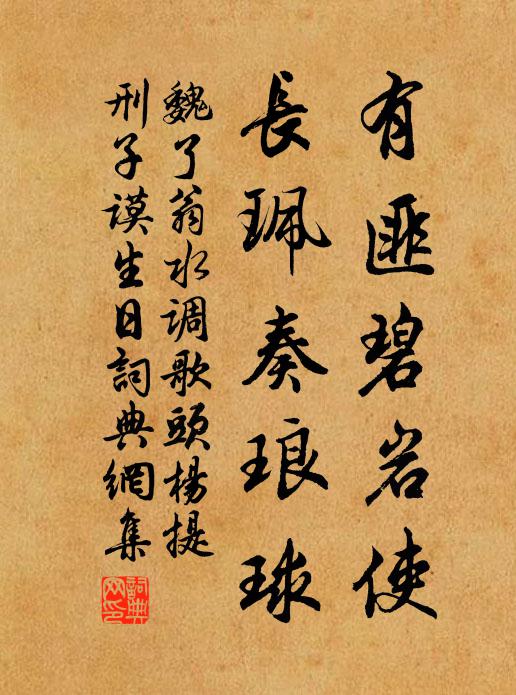 有匪碧岩使
長珮奏琅球
魏了翁水調歌頭楊提
刑子謨生日詞典網集
詞典网印